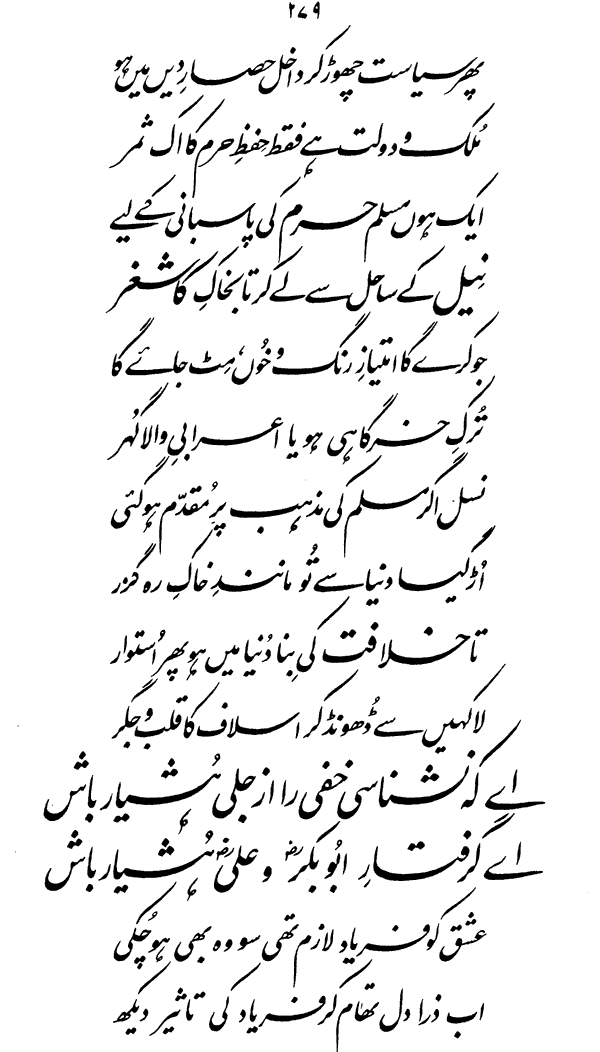 ۲۷۹
پھر سیاست چھوڑ کر داخل حصارِ دیں میں ہو
مُلک و دولت ہے فقط حِفظِ حرم کا اک ثمر
ایک ہوں مسلم حرم کی پاسبانی کے لیے
نیل کے ساحل سے لے کر تا بخاکِ کاشغر
جو کرے گا امتیازِ رنگ و خُوں، مِٹ جائے گا
تُرکِ خرگاہی ہو یا اعرابیِ والا گُہر
نسل اگر مسلم کی مذہب پر مُقدّم ہو گئی
اُڑ گیا دنیا سے تُو مانندِ خاکِ رہ گزر
تا خلافت کی بِنا دُنیا میں ہو پھر اُستوار
لا کہیں سے ڈُھونڈ کر اسلاف کا قلب و جگر
اے کہ نشناسی خفی را از جلی ہُشیار باش
اے گرفتارِ ابُوبکرؓ و علیؓ ہُشیار باش
عشق کو فریاد لازم تھی سو وہ بھی ہو چُکی
اب ذرا دل تھام کر فریاد کی تاثیر دیکھ